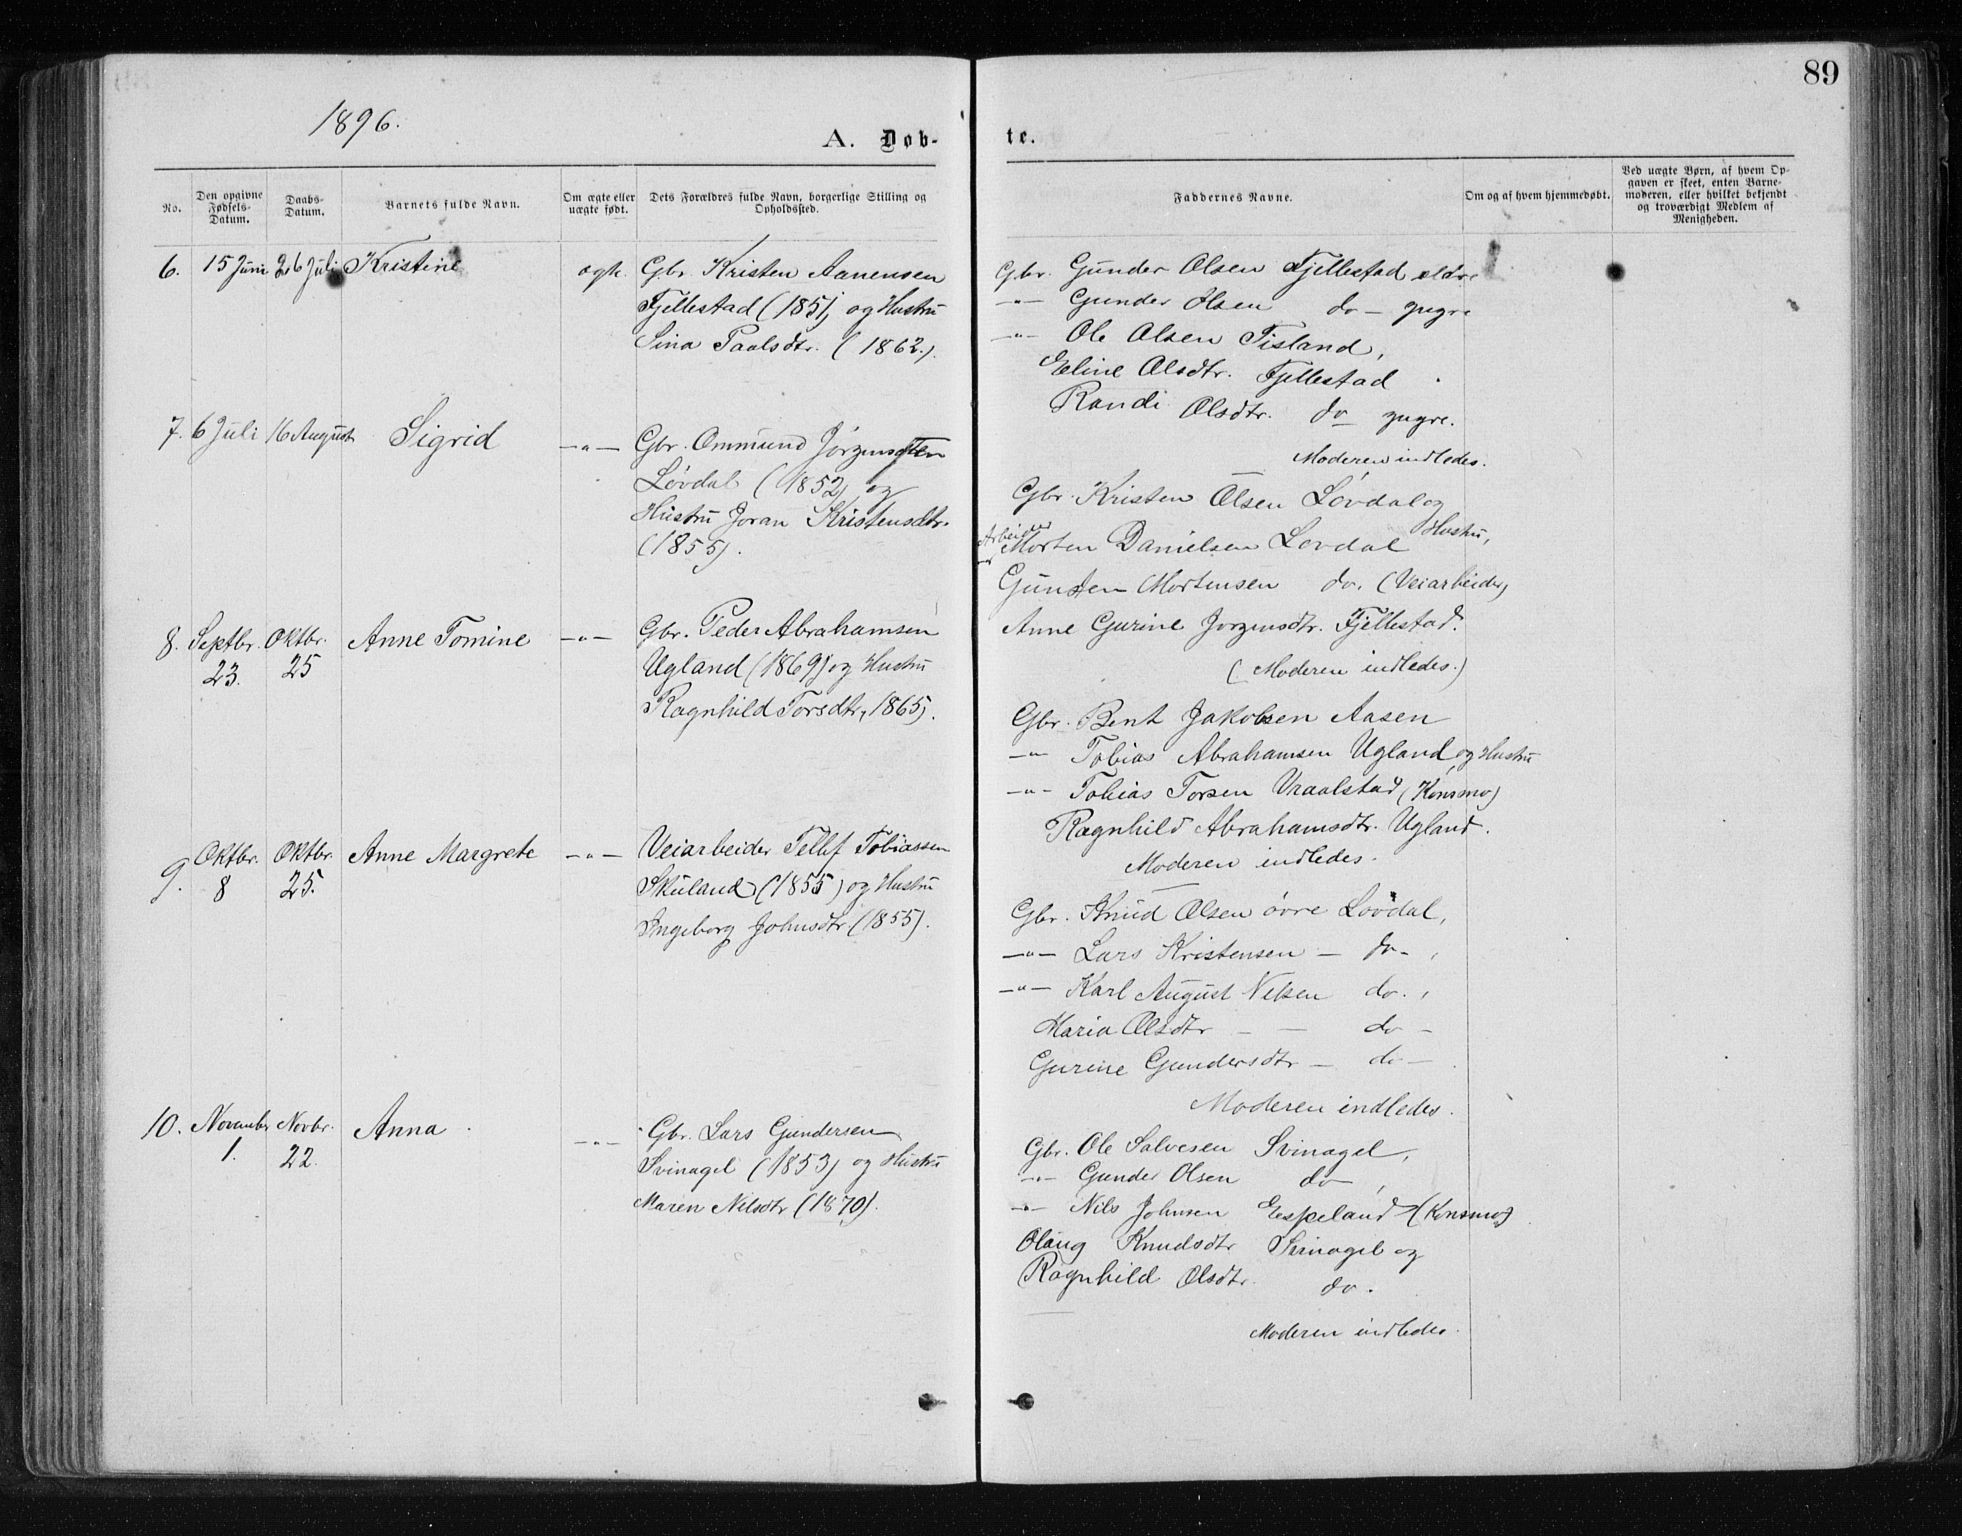 89
1896.
A. Døb-
te.
No.
Den opgivne Fødsels-Datum.
Daabs-Datum.
Barnets fulde Navn.
Om ægte eller uægte født.
Dets Forældres fulde Navn, borgerlige Stilling og Opholdssted.
Faddernes Navne.
Om og af hvem hjemmedøbt.
Ved uægte Børn, af hvem Op-
gaven er skeet, enten Barne-
moderen, eller hvilket bekjendt
og troværdigt Medlem af
Menigheden.
6. 15 Juni 26 Juli Kristine ægte. Gbr. Kristen Aanensen
Fjellestad (1851) og Hustru
Sina Paalsdtr. (1862.)
Gbr. Gunder Olsen Fjellestad eldre
-"- Gunder Olsen do - yngre
-"- Ole Olsen Tisland,
Eline Olsdtr. Fjellestad
Randi Olsdtr. do yngre.
Moderen indledes.
7. 6 Juli 16 August Sigrid -"- Gbr. Ommund Jørgensen
Løvdal (1852) og
Hustru Joran Kristensdtr.
(1855).
Gbr. Kristen Olsen Løvdal og
Hustru,
Arbeider Morten Danielsen Lovdal
Gunder Mortensen do. (Veiarbeider)
Anne Gurine Jorgensdtr. Fjellestad.
(Moderen indledes.)
8. Septbr. Oktbr. Anne Tomine -"- Gbr. Peder Abrahamsen
23. 25 Ugland (1869) og Hustru
Ragnhild Torsdtr, 1865).
Gbr. Bent Jakobsen Aasen
-"- Tobias Abrahamsen Ugland og Hustru
-"- Tobias Torsen Vraalstad (Konsmo)
Ragnhild Abrahamsdtr. Ugland.
Moderen indledes.
9. Oktbr. Oktbr. Anne Margrete -"- Veiarbeider Tellef Tobiassen
8 25. Skuland (1855) og Hustru
Ingeborg Johnsdtr (1855).
Gbr. Knud Olsen øvre Lovdal,
-"- Lars Kristensen - do - ,
-"- Karl August Nilsen do. ,
Maria Olsdtr - - do -
Gurine Gundersdtr - do -
Moderen indledes.
10. November Novbr. Anna -"- Gbr. Lars Gundersen
1. 22. Svinagel (1853) og Hustru
Maren Nilsdtr (1870).
Gbr. Ole Salvesen Svinagel,
-"- Gunder Olsen do ,
-"- Nils Johnsen Eespeland (Konsmo)
Olaug Knudsdtr Svinagel og
Ragnhild Olsdtr. do.
Moderen indledes.